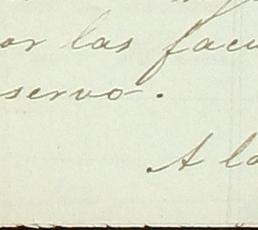 or las facu
servo.
A la